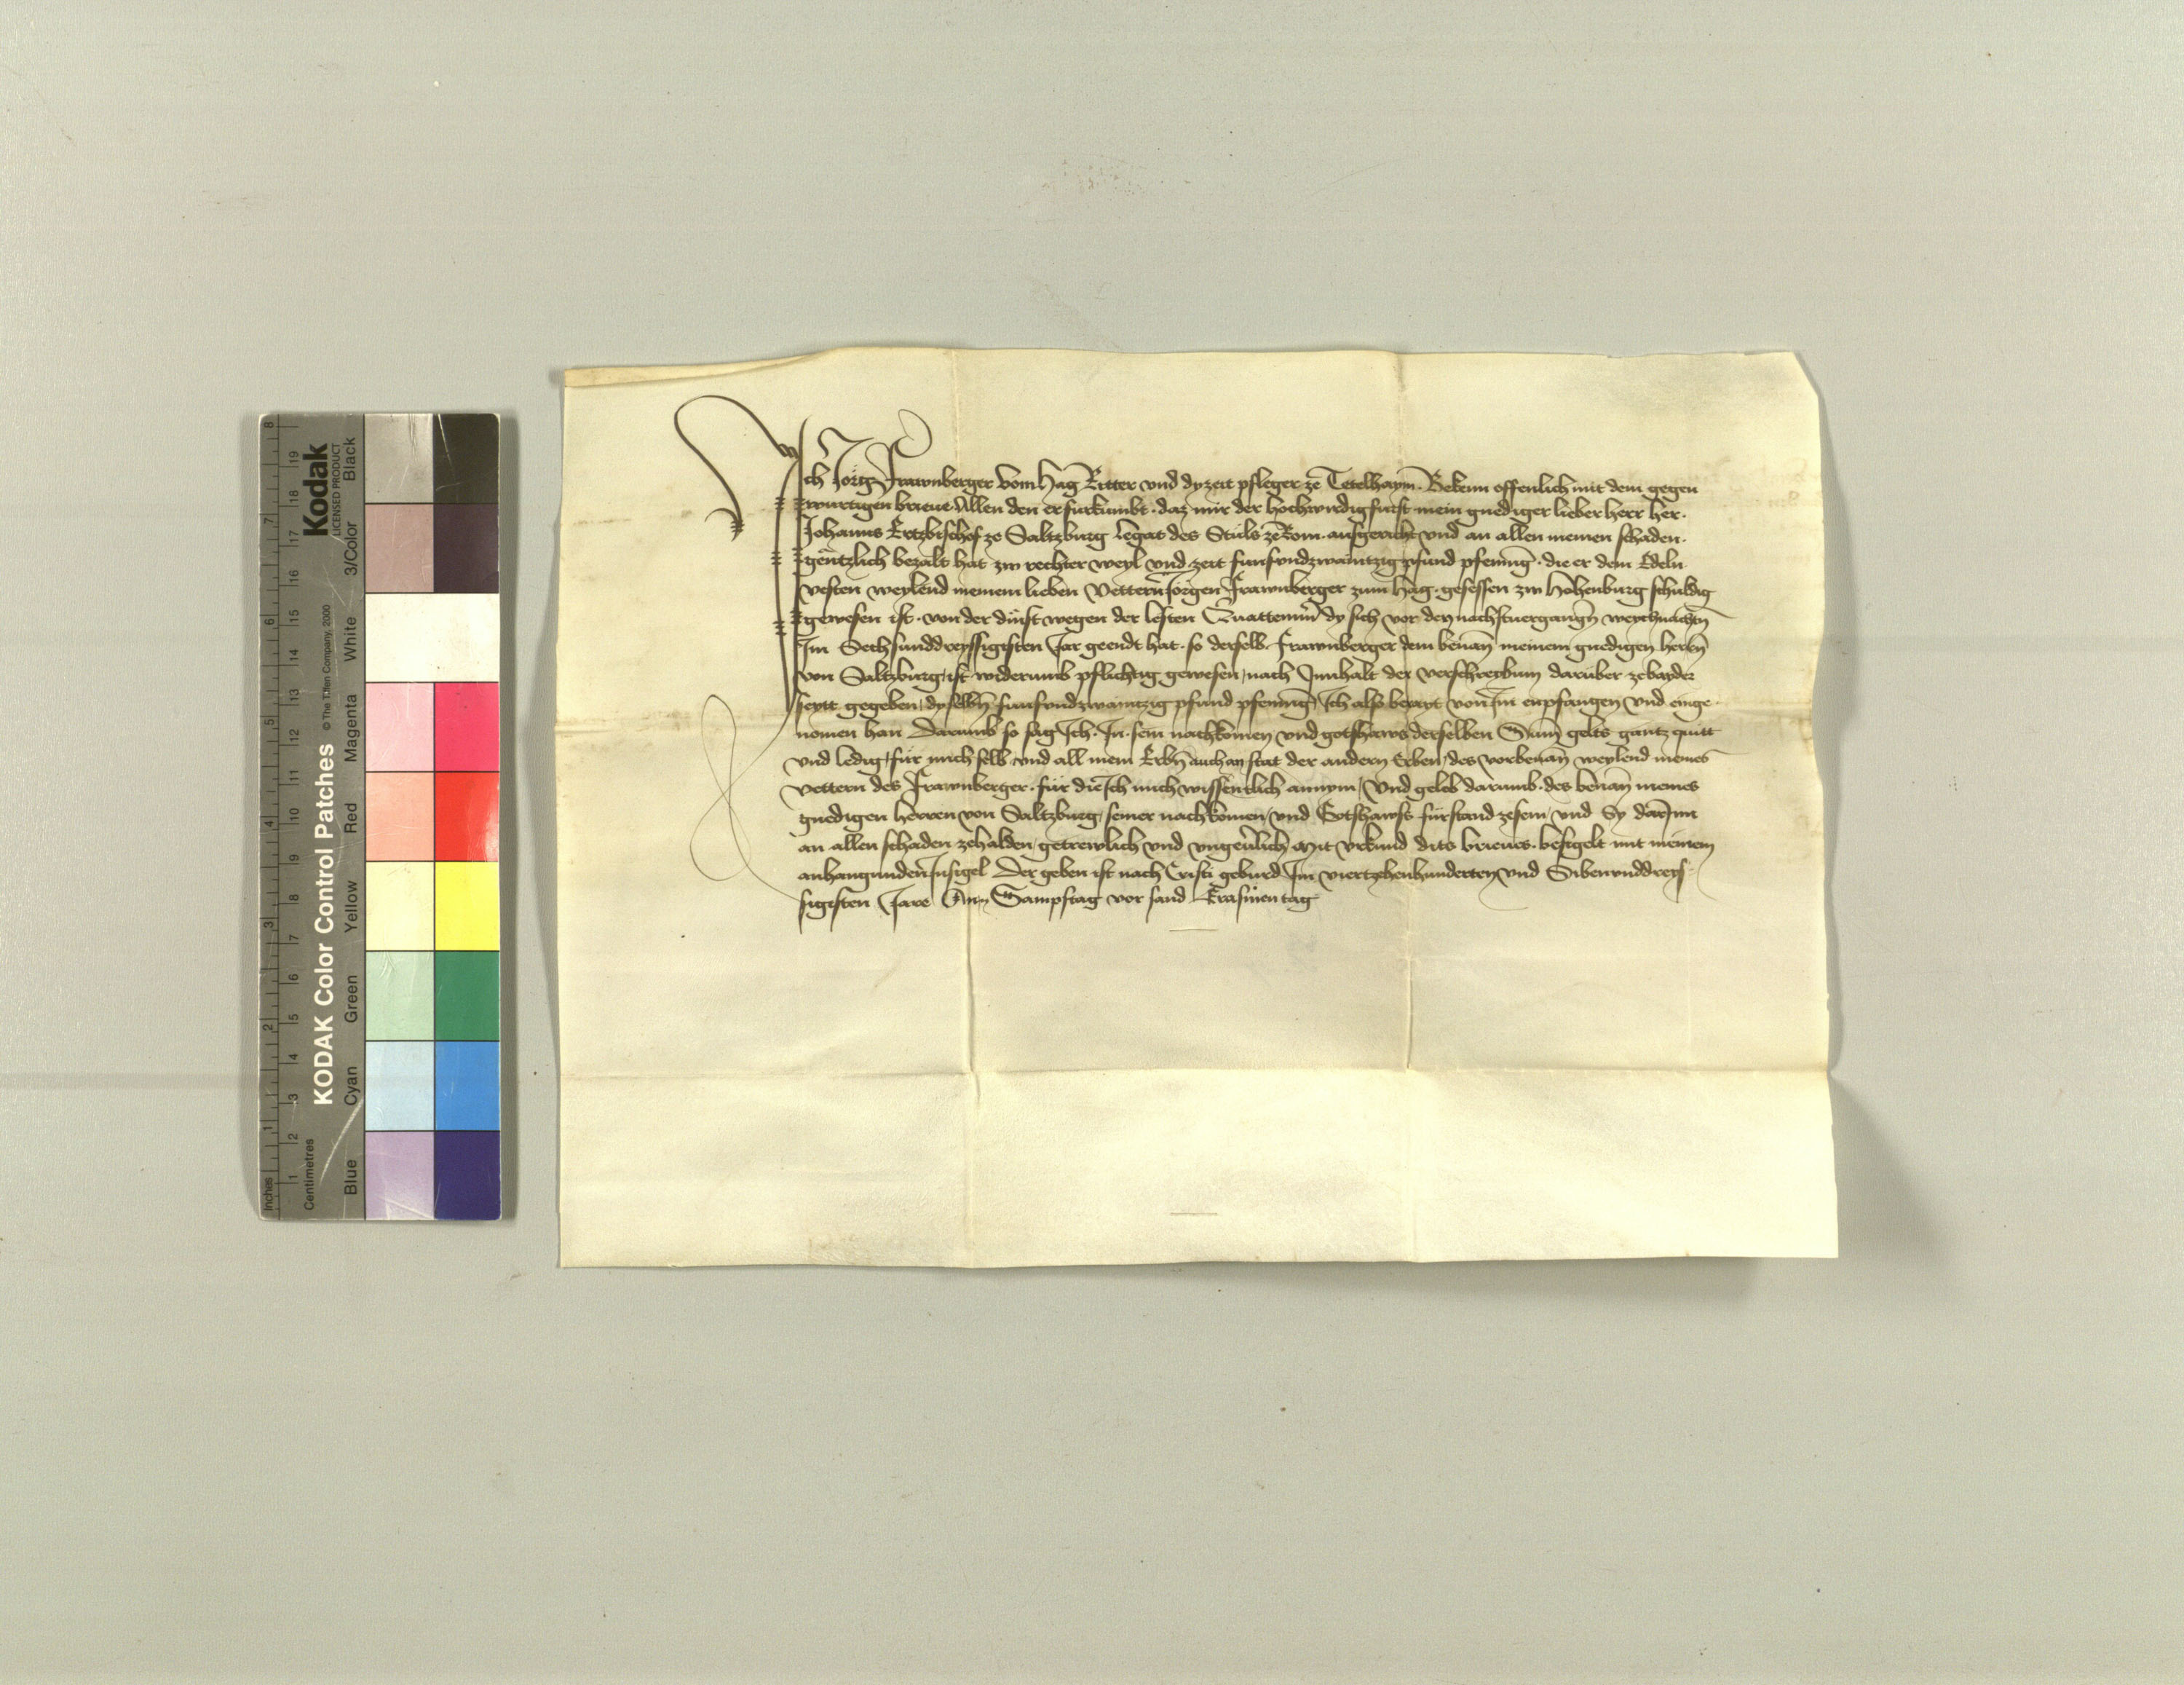 Ich Jörg Frawnberger vom Hag Ritter vnd dyzeit pfleger ze Tetelhaym. Bekenn offenlich mit dem gegen
wurtigen brieue. Allen den er furkumbt. daz mir der hochwirdig furst mein gnediger lieber herr her.
Johanns Ertzbischof ze Saltzburg legat des Stuls ze Rom. ausgericht vnd an allen meinen schaden.
gentzlich bezalt hat zw rechter weyl vnd zeit funfvndzwaintzig pfund pfening. die er dem Edeln
vesten weylend meinem lieben Vettern Jorgen Frawnberger zum Hag. gesessen zw Hohenburg schuldig
gewesen ist. von der dinst wegen der lesten Quattemer dy sich vor den nachstuergangn weychnachtn
Im Sechsunddreyssigisten Jar geendt hat. so derselb. Frawnberger dem benan meinem gnedigen herrn
von Saltzburg, ist widerumb pflichtig gewesen, nach Innhalt der verschreybum darüber zebayder
seytt gegeben, dyselbn funfvndzwaintzig pfund pfening Ich also berayt von Im enpfangen vnd einge
nomen han Darumb so sag Ich. In. sein nachkomen vnd gotshaws derselben Sum gelts gantz quitt
vnd ledig, für mich selb vnd all mein Erbn auch an stat der andern Erben, des vorbenan weylend meines
vettern des Frawnberger. für die Ich mich wissentlich annym, Vnd gelob darumb. des benan meines
gnedigen herren von Saltzburg, seiner nachkomen, vnd Gotshawss fürstand zesein, vnd Sy darinn
an allen schaden zehalden getrewlich vnd vngeuerlich Mit vrkund dits brieues. besigelt mit meinem
anhangunden Insigel Der geben ist nach Cristi geburd Im viertzehenhunderten vnd Sibenvnddreys
sigisten Jare Am Sampstag vor sand Erasmen tag
Kodak
LICENSED PRODUCT
KODAK Color Control Patches © The Tiffen Company, 2000
Inches 1 2 3 4 5 6 7 8
Centimetres 1 2 3 4 5 6 7 8 9 10 11 12 13 14 15 16 17 18 19
Blue Cyan Green Yellow Red Magenta White 3/Color Black